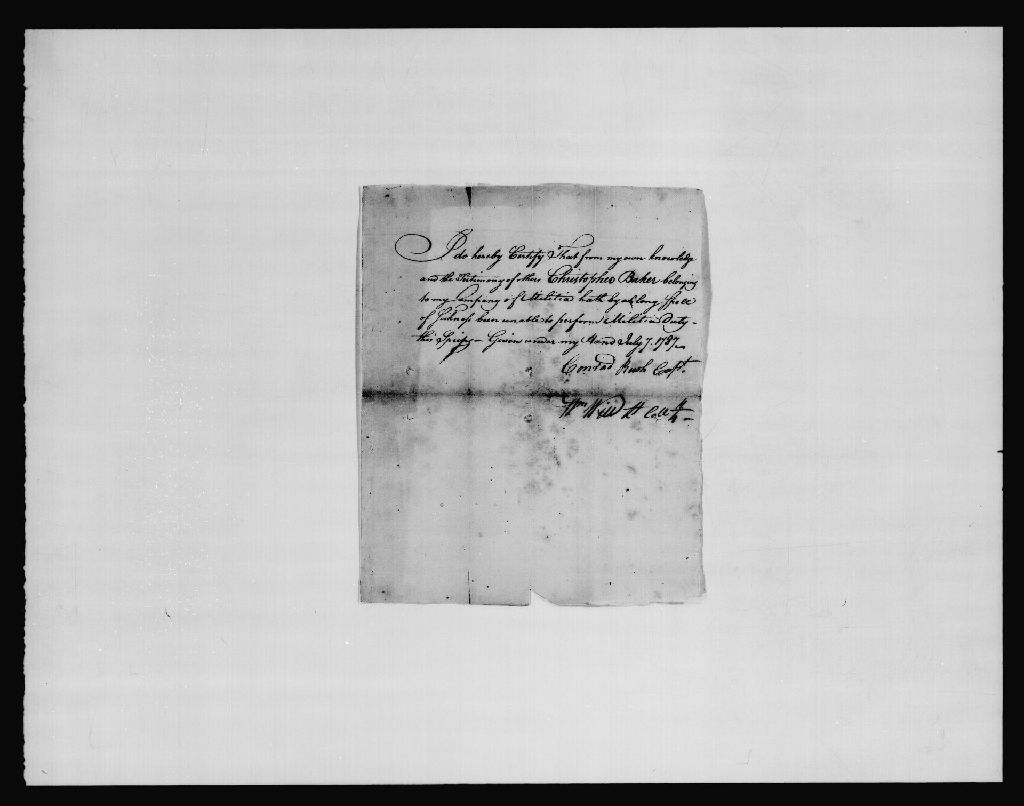 I do hereby Certify That from my own knowledge
and the Testimony of others Christopher Baker belonging
to my Company of Militia hath by a long Spell
of Sickness been unable to perform Militia Duty
this Spring – Given under my Hand July 7. 1787
Conrad Bush Capt.
Wm Will Lt Coll